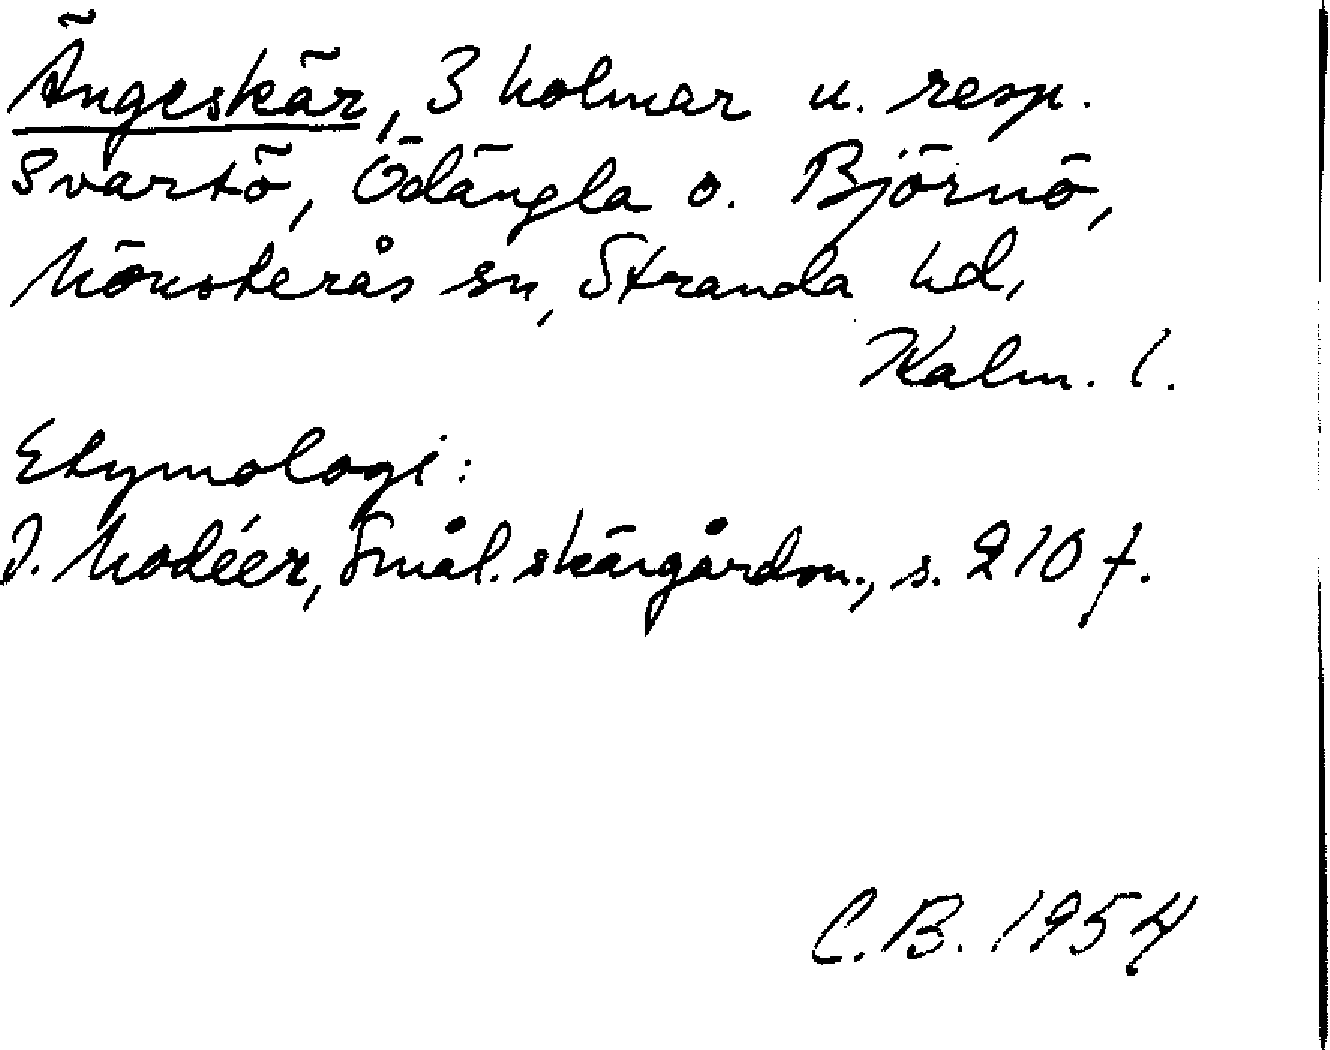 Ängeskär, 3 holmar u. resp.
Svartö, Ödängla o. Björnö,
Mönsterås sn, Stranda hd,
Kalm. l.
Etymologi:
I. Modéer, Smål. skärgårdsn., s. 210 f.
C.B. 1954